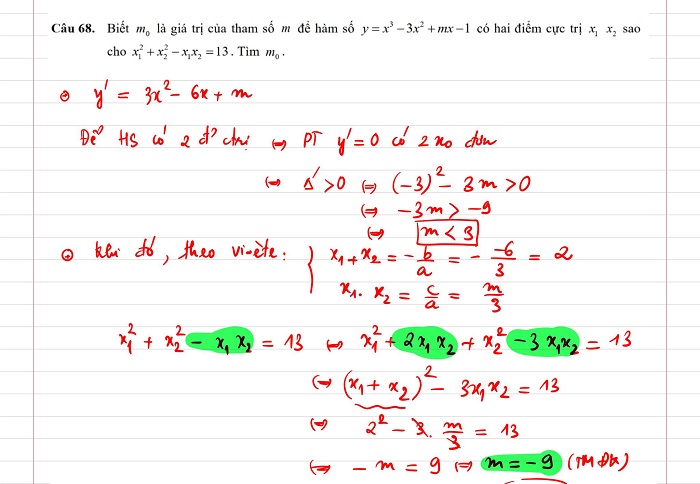 Câu 68. Biết m₀ là giá trị của tham số m để hàm số y = x³ − 3x² + mx − 1 có hai điểm cực trị x₁ x₂ sao
cho x₁² + x₂² − x₁x₂ = 13. Tìm m₀.
y' = 3x² − 6x + m
Để HS có 2 đ² ctrị ⇔ PT y' = 0 có 2 no đơn
⇔ Δ' > 0 ⇔ (−3)² − 3m > 0
⇔ −3m > −9
⇔ m < 3
Khi đó, theo vi-ète: { x₁ + x₂ = −b/a = −(−6)/3 = 2
x₁ . x₂ = c/a = m/3
x₁² + x₂² − x₁x₂ = 13 ⇔ x₁² + 2x₁x₂ + x₂² − 3x₁x₂ = 13
⇔ (x₁ + x₂)² − 3x₁x₂ = 13
⇔ 2² − 3 . m/3 = 13
⇔ −m = 9 ⇔ m = −9 (TM ĐK)